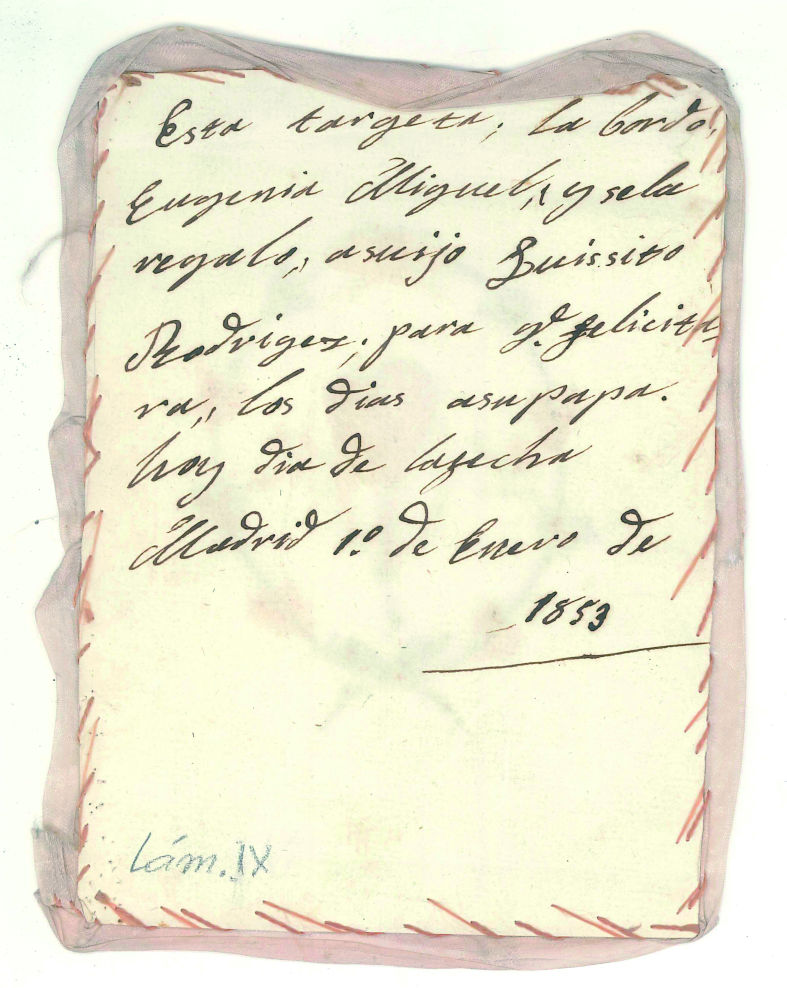 Esta targeta, la bordo,
Eugenia Miguel,, y sela
regalo,, asuijo Luissito
Rodrigez, para qe. felicita
ra,, los dias asupapa.
hoy dia de lafecha
Madrid 1º de Enero de
1853
Lám. IX